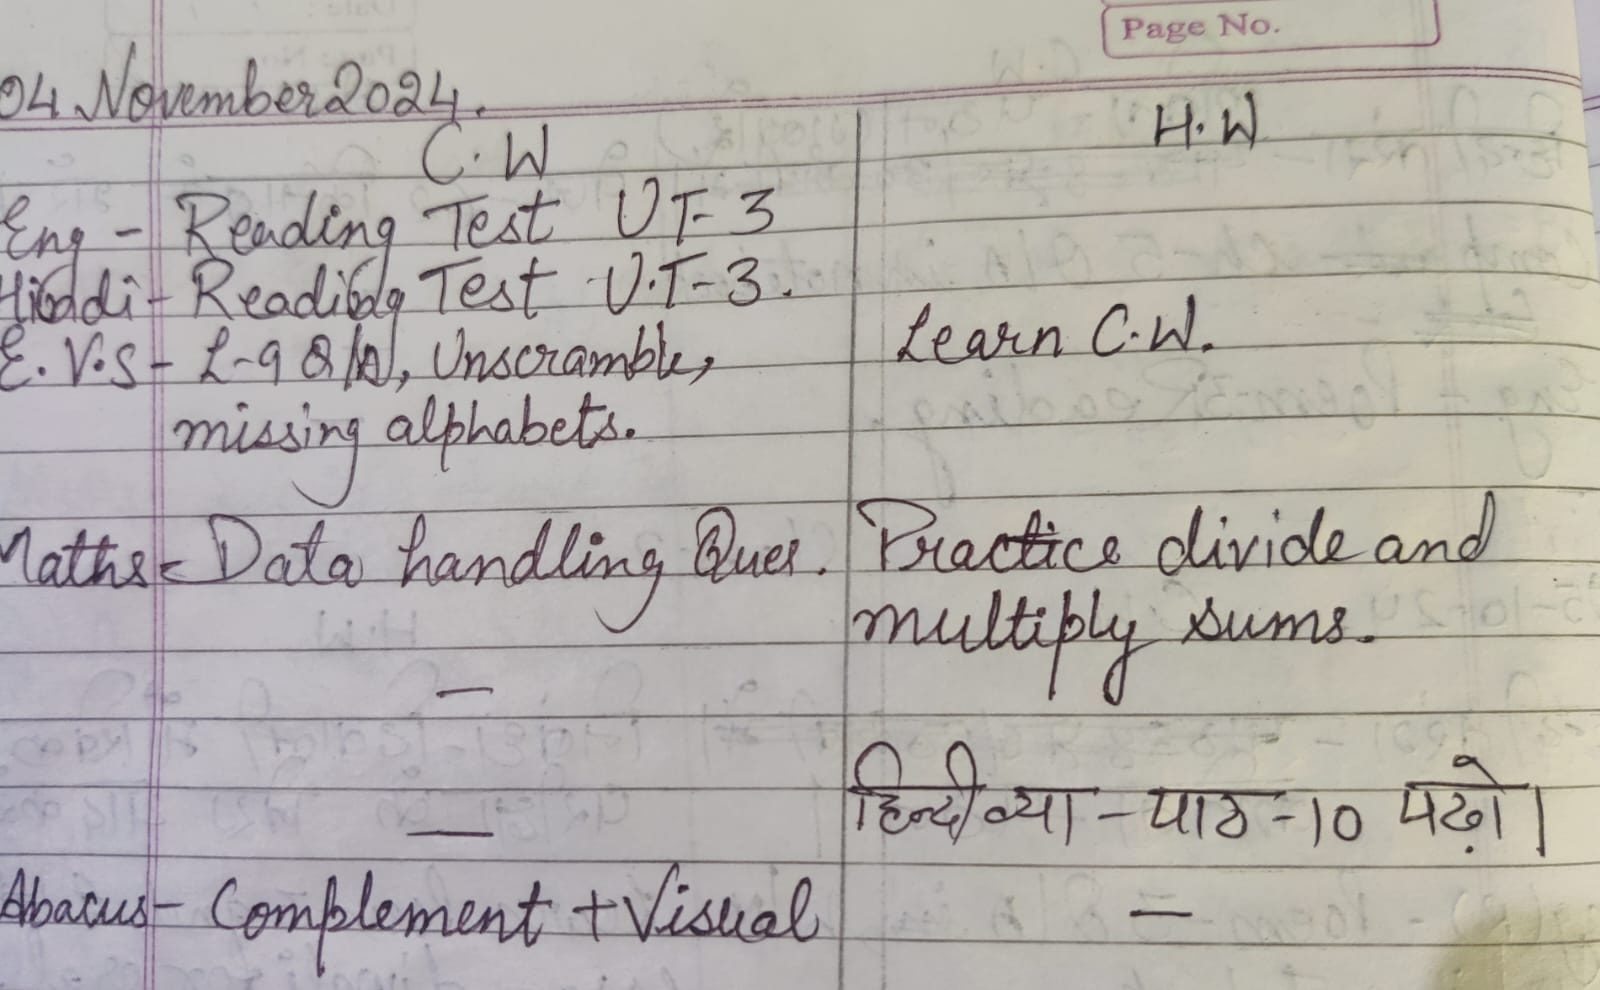 Page No.
04 November 2024.
C.W
H.W
Eng - Reading Test UT-3
Hindi - Reading Test U.T-3.
E.V.S - L-9 Q/A, Unscramble,
Learn C.W.
missing alphabets.
Maths - Data handling Ques.
Practice divide and
multiply sums.
—
—
हिन्दी व्या - पाठ -10 पढ़ो।
Abacus - Complement + Visual
—